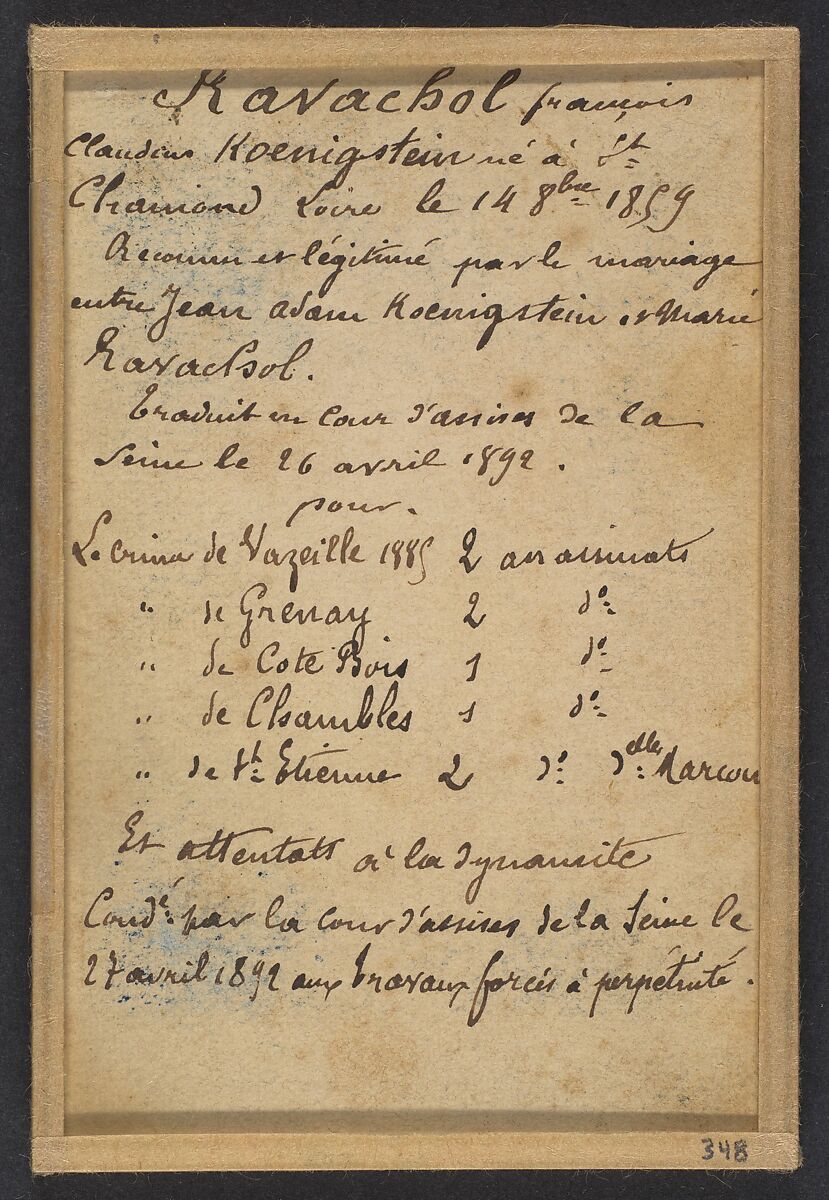 Ravachol françois
Claudius Koenigstein né à St
Chamond Loire le 14 8bre 1859
Reconnu et légitimé par le mariage
entre Jean Adam Koenigstein et Marie
Ravachol.
Traduit en Cour d'assises de la
Seine le 26 avril 1892.
pour.
Le crime de Vazeille 1885 2 assassinats
" de Grenay 2 do
" de Cote Bois 1 do
" de Chambles 1 do
" de St Etienne 2 do delles Marcou
Et attentats à la dynamite
Condé par la cour d'assises de la Seine le
27 avril 1892 aux travaux forcés à perpétuité.
348